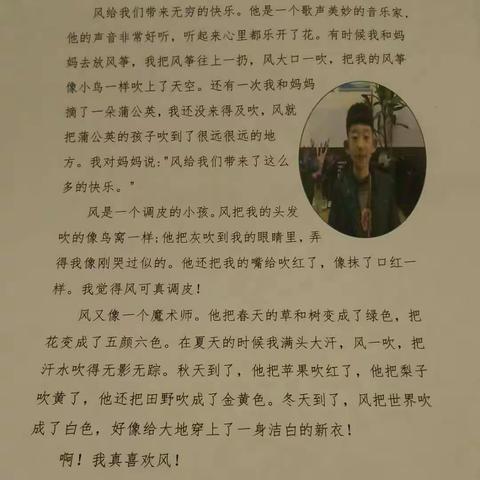 风给我们带来无穷的快乐。他是一个歌声美妙的音乐家,
他的声音非常好听，听起来心里都乐开了花。有时候我和妈
妈去放风筝，我把风筝往上一扔，风大口一吹，把我的风筝
像小鸟一样吹上了天空。还有一次我和妈妈
摘了一朵蒲公英，我还没来得及吹，风就
把蒲公英的孩子吹到了很远很远的地
方。我对妈妈说:"风给我们带来了这么
多的快乐。"
风是一个调皮的小孩。风把我的头发
吹的像鸟窝一样;他把灰吹到我的眼睛里，弄
得我像刚哭过似的。他还把我的嘴给吹红了，像抹了口红一
样。我觉得风可真调皮！
风又像一个魔术师。他把春天的草和树变成了绿色，把
花变成了五颜六色。在夏天的时候我满头大汗，风一吹，把
汗水吹得无影无踪。秋天到了，他把苹果吹红了，他把梨子
吹黄了，他还把田野吹成了金黄色。冬天到了，风把世界吹
成了白色，好像给大地穿上了一身洁白的新衣！
啊！我真喜欢风！